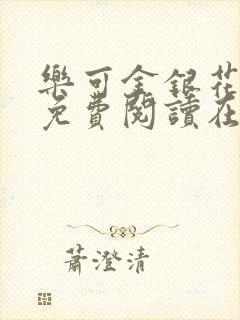 樂可金銀花
免費閱讀在
蕭澄清